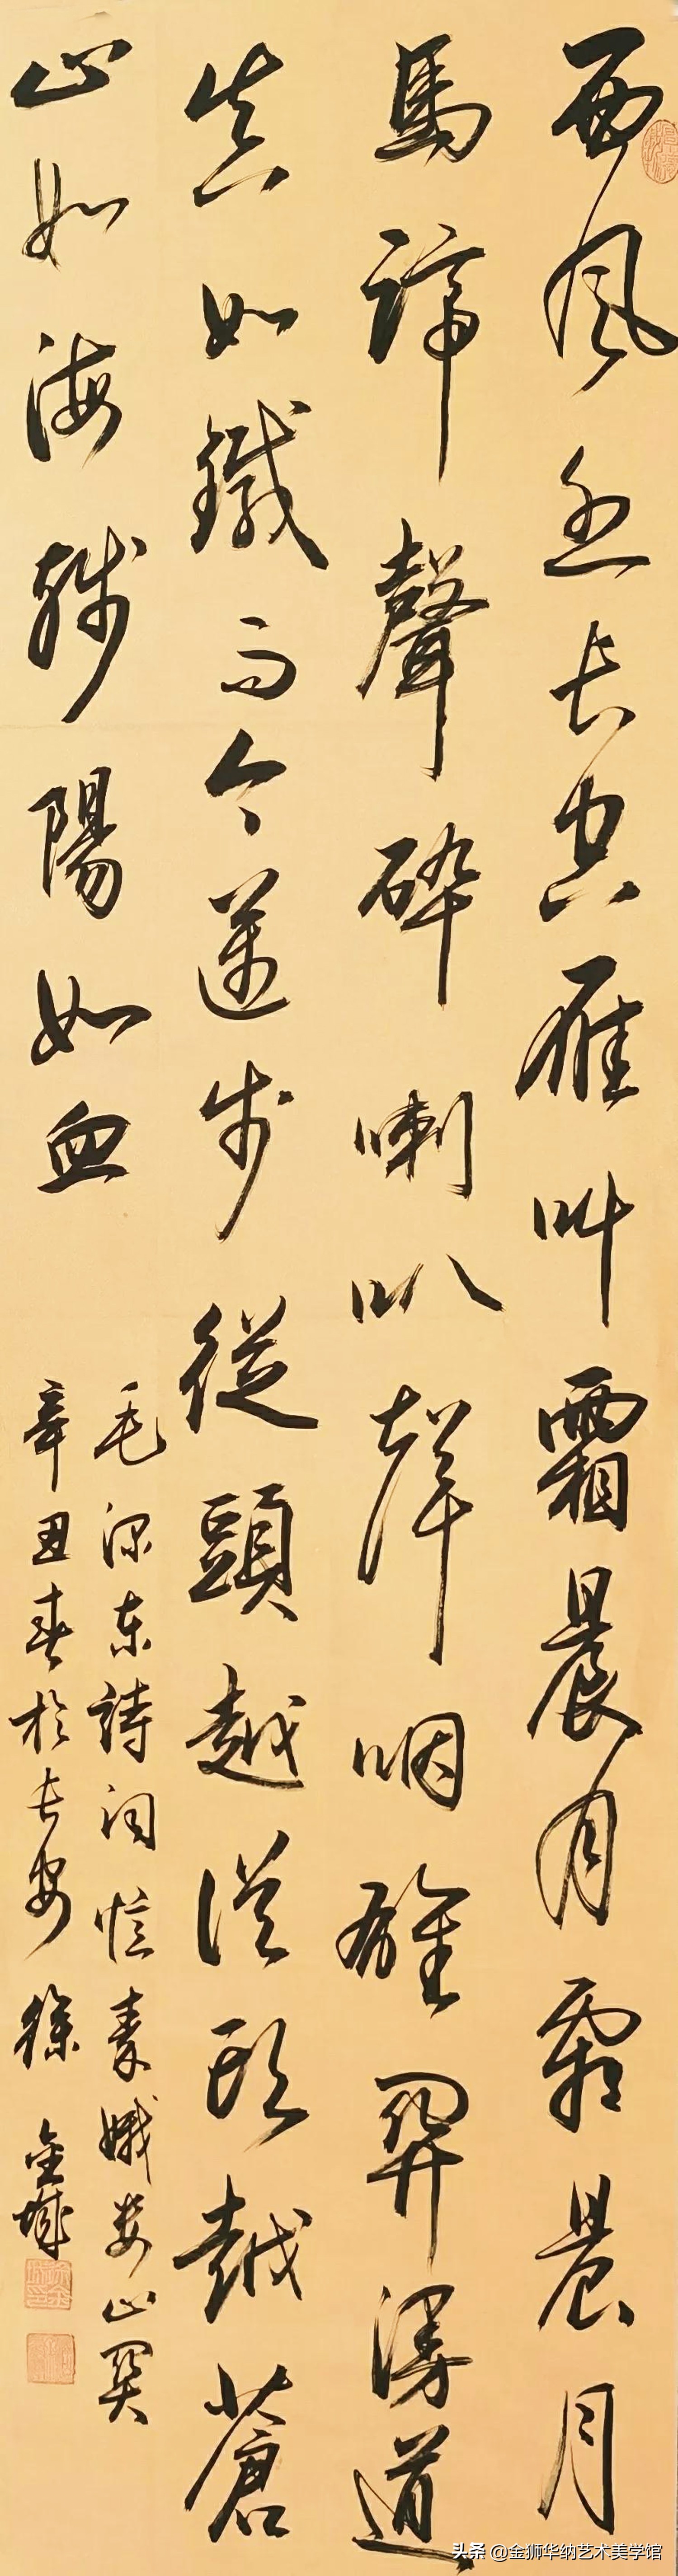 西风烈长空雁叫霜晨月霜晨月
馬蹄聲碎喇叭聲咽雄關漫道
真如鐵而今邁步從頭越從頭越蒼
山如海殘陽如血
毛泽东詩词憶秦娥娄山關
辛丑春於长安徐金城
头条 @金狮华纳艺术美学馆